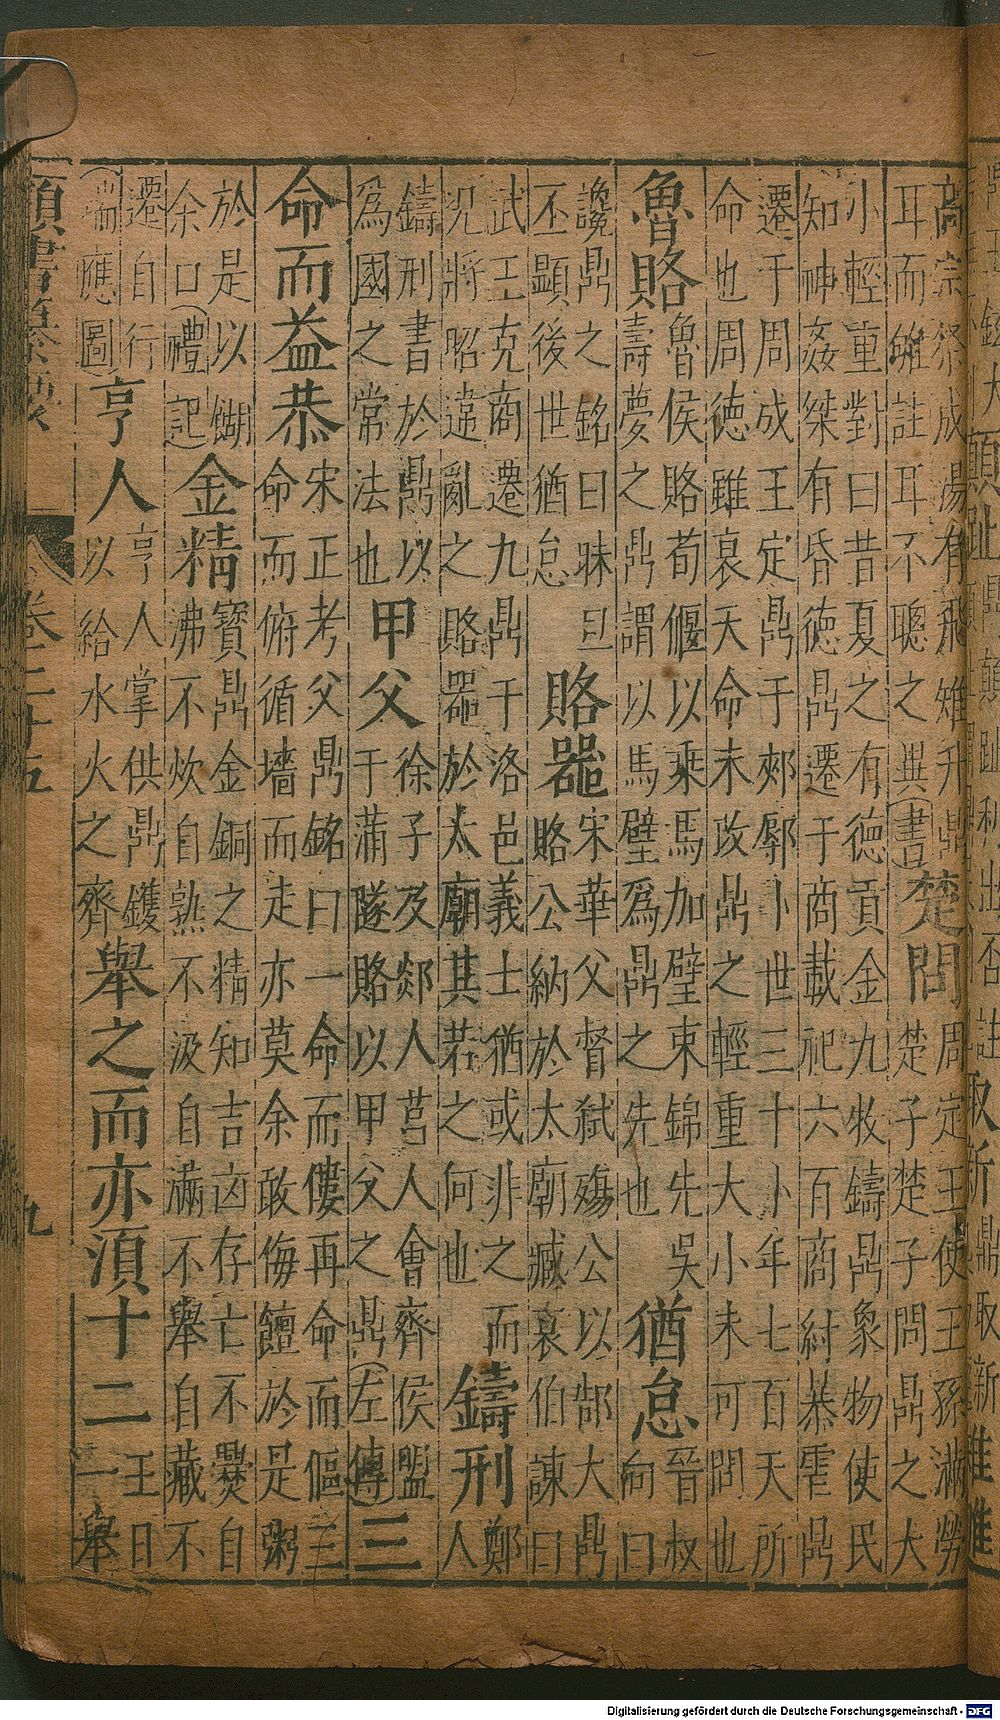 高宗祭成湯有飛雉升鼎
耳而雊註耳不聰之異(書)
楚問
周定王使王孫滿勞
楚子楚子問鼎之大
小輕重對曰昔夏之有德貢金九牧鑄鼎象物使民
知神姦桀有昏德鼎遷于商載祀六百商紂暴虐鼎
遷于周成王定鼎于郟鄏卜世三十卜年七百天所
命也周德雖衰天命未改鼎之輕重大小未可問也
魯賂
魯侯賂荀偃以乘馬加璧束錦先吳
壽夢之鼎謂以馬璧爲鼎之先也
猶怠
晉叔
向曰
讒鼎之銘曰昧旦
丕顯後世猶怠
賂器
宋華父督弑殤公以郜大鼎
賂公納於太廟臧哀伯諫曰
武王克商遷九鼎于洛邑義士猶或非之而
况將昭違亂之賂器於太廟其若之何也
鑄刑
鄭
人
鑄刑書於鼎以
爲國之常法也
甲父
徐子及郯人莒人會齊侯盟
于蒲隧賂以甲父之鼎(左傳)
三
命而益恭
宋正考父鼎銘曰一命而僂再命而傴三
命而俯循墻而走亦莫余敢侮饘於是粥
於是以餬
余口(禮記)
金精
寶鼎金銅之精知吉凶存亡不爨自
沸不炊自熟不汲自滿不舉自藏不
遷自行
(瑞應圖
亨人
亨人掌供鼎鑊
以給水火之齊
舉之而亦須十二
王日
一舉
卷二十五
九
Digitalisierung gefördert durch die Deutsche Forschungsgemeinschaft - DFG